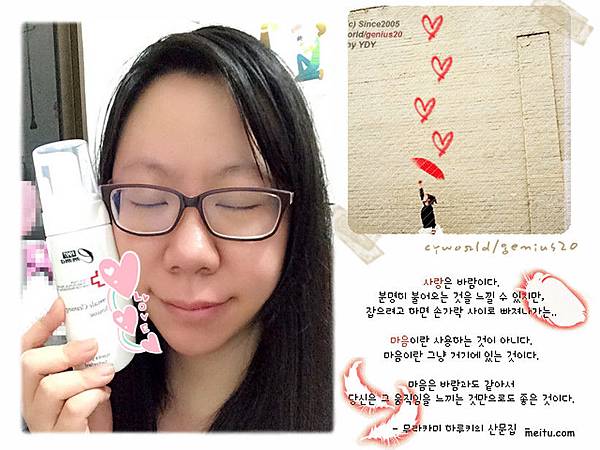 c) Since2005
orld/genius20
by YDY
LOVE
cyworld/genius20
사랑은 바람이다.
분명히 불어오는 것을 느낄 수 있지만,
잡으려고 하면 손가락 사이로 빠져나가는..
마음이란 사용하는 것이 아니다.
마음이란 그냥 거기에 있는 것이다.
마음은 바람과도 같아서
당신은 그 움직임을 느끼는 것만으로도 좋은 것이다.
- 무라카미 하루키의 산문집 -
meitu.com